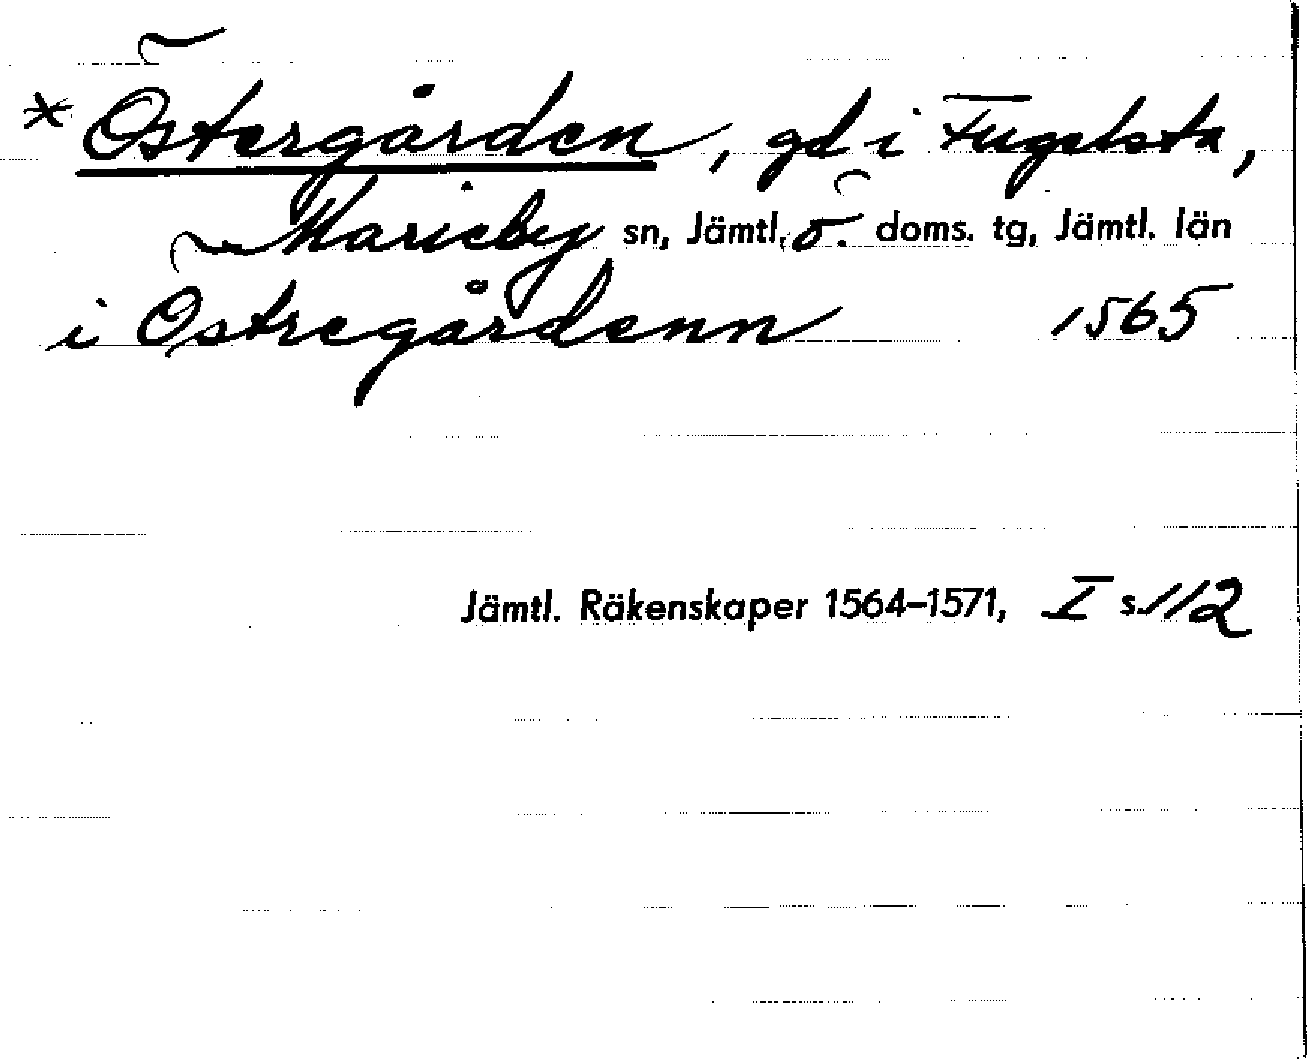 * Östergården, gd i Fugelsta,
Marieby sn, Jämtl. ö. doms. tg, Jämtl. län
i Östregårdenn 1565
Jämtl. Räkenskaper 1564–1571, I s. 112